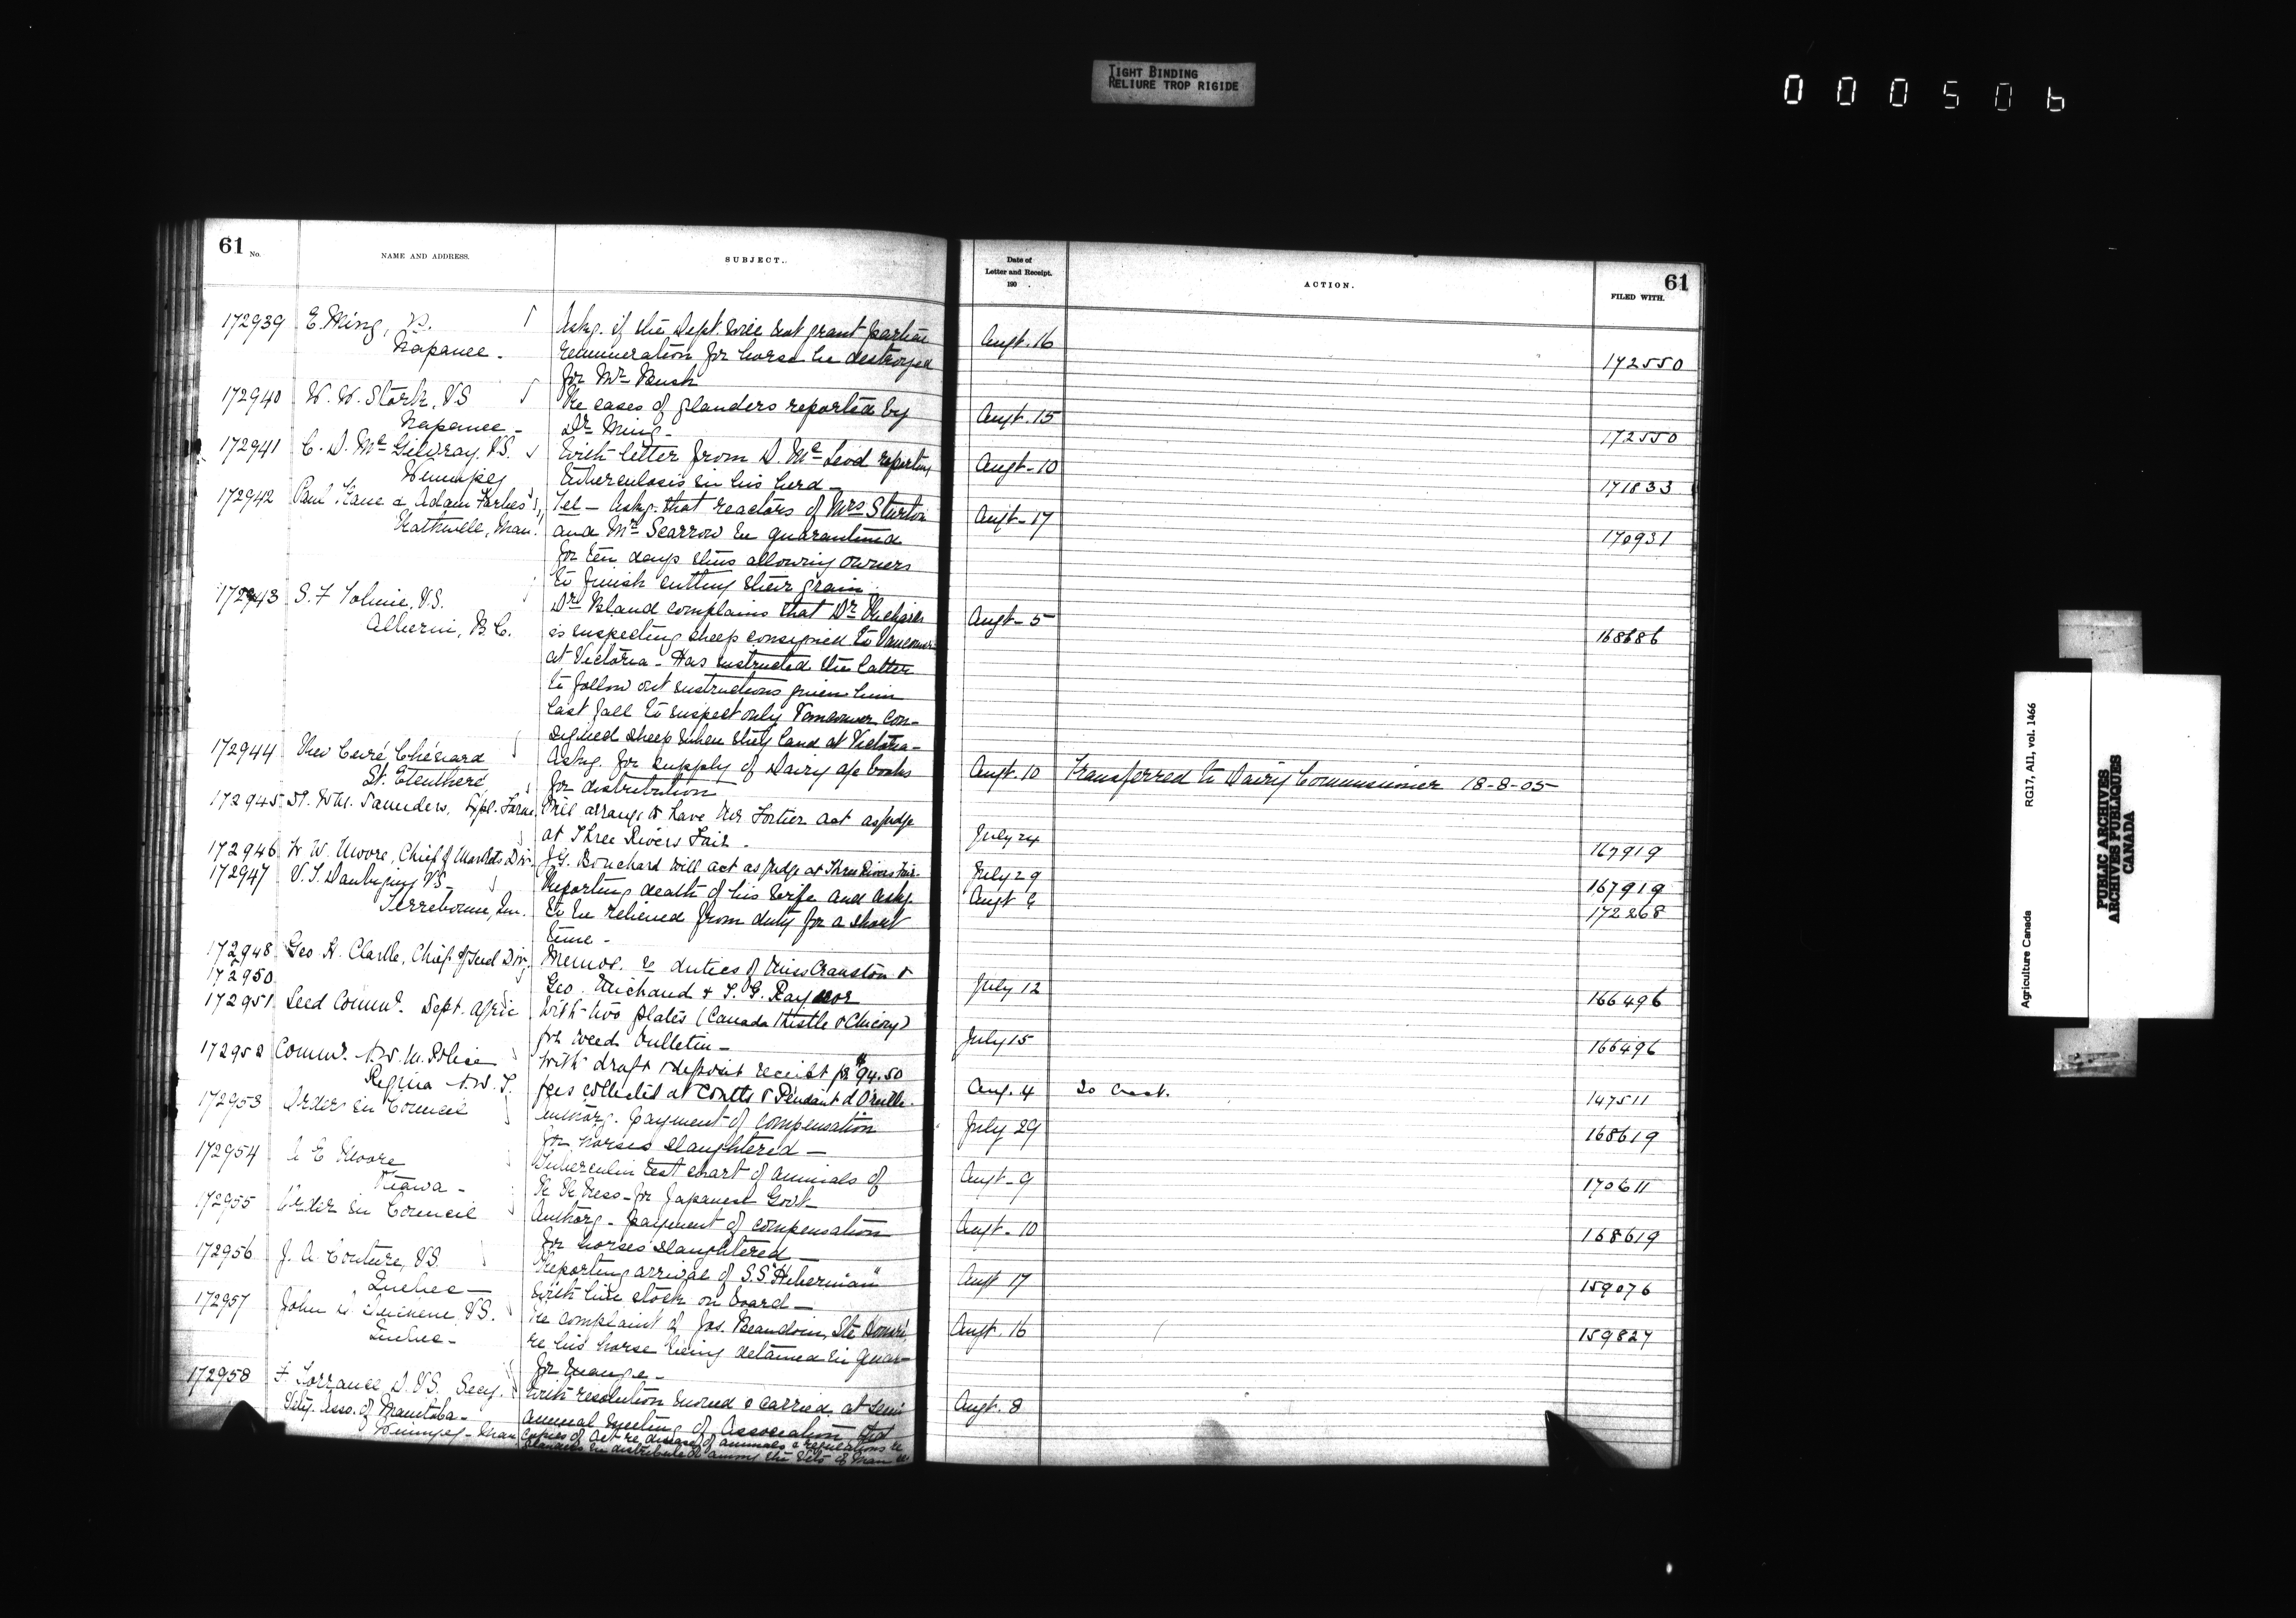 TIGHT BINDING
RELIURE TROP RIGIDE
000506
61 No. NAME AND ADDRESS. SUBJECT.
Date of Letter and Receipt. 190 . ACTION. FILED WITH. 61
172939 E. Ming, VS. Askg. if the Dept. will not grant partial Augt. 16 172550
Napanee - remuneration for horse he destroyed
for Mr Bush
172940 W. W. Stork, VS Re cases of glanders reported by Augt. 15 172550
Napanee - Dr Ming -
172941 C. D. McGilvray, VS. With letter from D. McLeod reporting Augt - 10 171833
Winnipeg tuberculosis in his herd -
172942 Paul Kane & Adam Forbes Tel - Askg. that reactors of Mrs Sturton Augt - 17 170931
Rathwell, Man. and Mr Scarrow be quarantined
for ten days thus allowing owners
to finish cutting their grain
172943 S. F. Tolmie, VS. Dr Bland complains that Dr Augt - 5 168686
Alberni, B.C. is inspecting sheep consigned to Vancouver
at Victoria - Has instructed the latter
to follow out instructions given him
last fall to inspect only Vancouver con-
signed sheep when they land at Victoria -
172944 Rev Curé Chénard Askg. for supply of Dairy &c books Augt. 10 Transferred to Dairy Commissioner 18-8-05
St. Eleuthère for distribution
172945 Dr. Wm. Saunders, Expl. Farm Will arrange to have Mr Fortier act as judge July 24 167919
at Three Rivers Fair -
172946 W. W. Moore, Chief of Markets Div. J. G. Bouchard will act as judge at Three Rivers Fair - July 29 167919
172947 V. T. Daubigny VS - Reporting death of his wife and askg. Augt 6 172268
Terrebonne, Que. to be relieved from duty for a short
time -
172948 Geo H. Clark, Chief of Seed Div. Memos. re duties of Miss Cranston & July 12 166496
172950 Geo. Michaud & T. G. Raynor
172951 Seed Commr. Dept. Agric With two plates (Canada Thistle & Chicory) July 15 166496
for weed bulletin -
172952 Commr. N.W.M. Police With draft & deposit receipt for $94.50 Aug. 4 To Acct. 147511
Regina N.W.T. fees collected at Coutts & Pendant d'Oreille -
172953 Order in Council Authorg. payment of compensation July 29 168619
for horses slaughtered -
172954 A E Moore Tuberculin test chart of animals of Augt - 9 170611
Ottawa - R R Ness - for Japanese Govt -
172955 Order in Council Authorg - payment of compensation Augt - 10 168619
for horses slaughtered -
172956 J. A. Couture, VS. Reporting arrival of S.S. "Hibernian" Augt 17 159076
Quebec - with live stock on board -
172957 John D. Duchene, VS. Re complaint of Jos. Beaudoin, Ste Augt. 16 159827
Quebec - re his horse being detained in quar-
for mange -
172958 F. Torrance D.V.S. Secy. With resolution moved & carried at semi Augt. 8
Vety. Asso. of Manitoba - annual meeting of Association that
Winnipeg - Man copies of Act re disease of animals & regulations re
glanders be distributed among the Vets of Man
Agriculture Canada RG17, AII, vol. 1466
PUBLIC ARCHIVES
ARCHIVES PUBLIQUES
CANADA